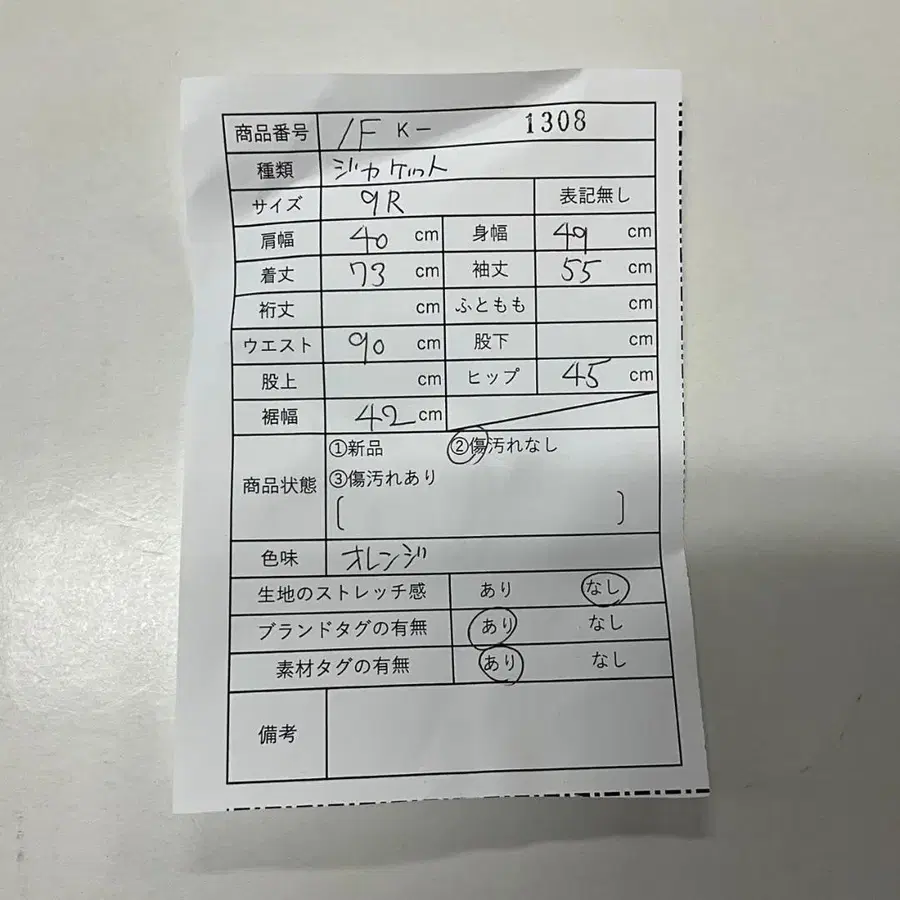 商品番号 1F K- 1308
種類 ジャケット
サイズ 9R 表記無し
肩幅 40 cm 身幅 49 cm
着丈 73 cm 袖丈 55 cm
裄丈 cm ふともも cm
ウエスト 90 cm 股下 cm
股上 cm ヒップ 45 cm
裾幅 42 cm
商品状態 ①新品 ②傷汚れなし
③傷汚れあり
[ ]
色味 オレンジ
生地のストレッチ感 あり なし
ブランドタグの有無 あり なし
素材タグの有無 あり なし
備考